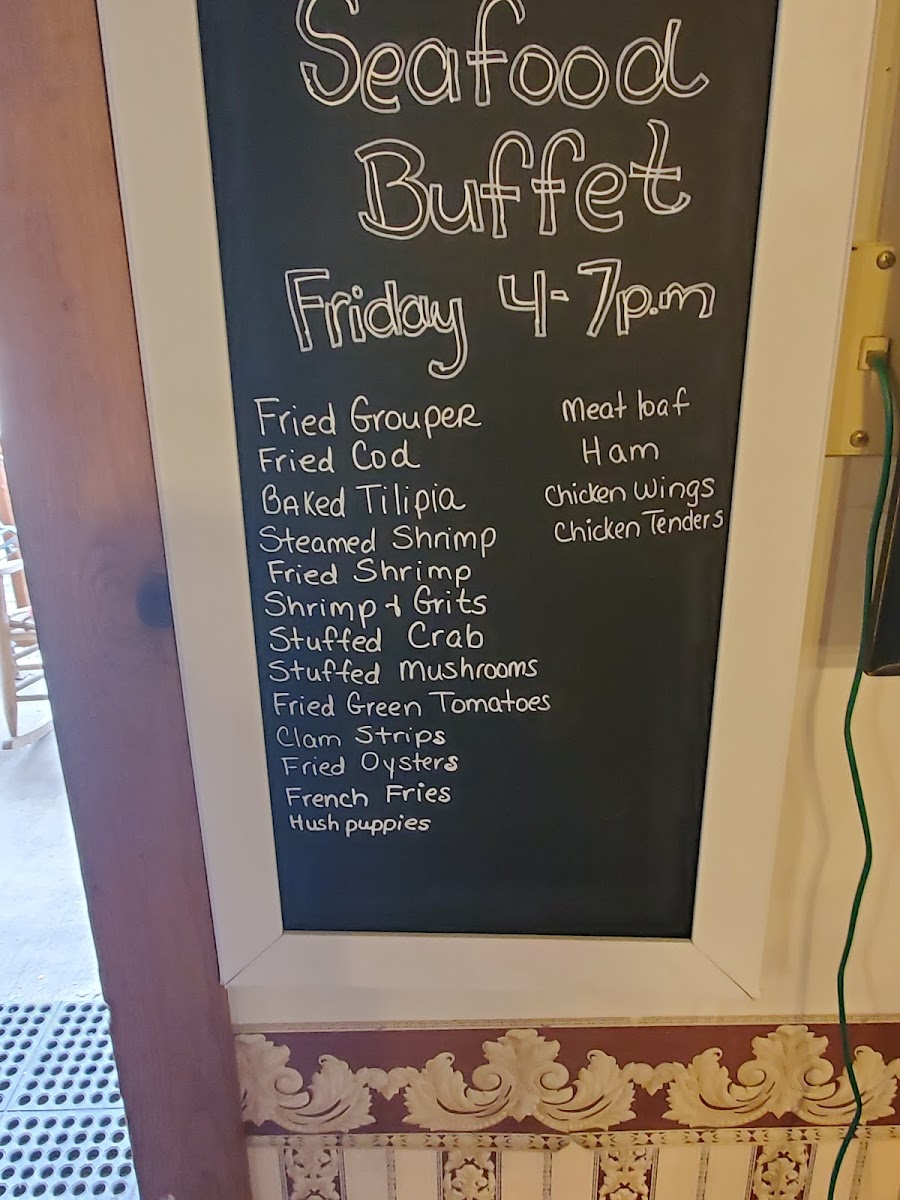 Seafood
Buffet
Friday 4-7p.m
Fried Grouper
Fried Cod
Baked Tilipia
Steamed Shrimp
Fried Shrimp
Shrimp & Grits
Stuffed Crab
Stuffed Mushrooms
Fried Green Tomatoes
Clam Strips
Fried Oysters
French Fries
Hush puppies
Meat loaf
Ham
Chicken Wings
Chicken Tenders